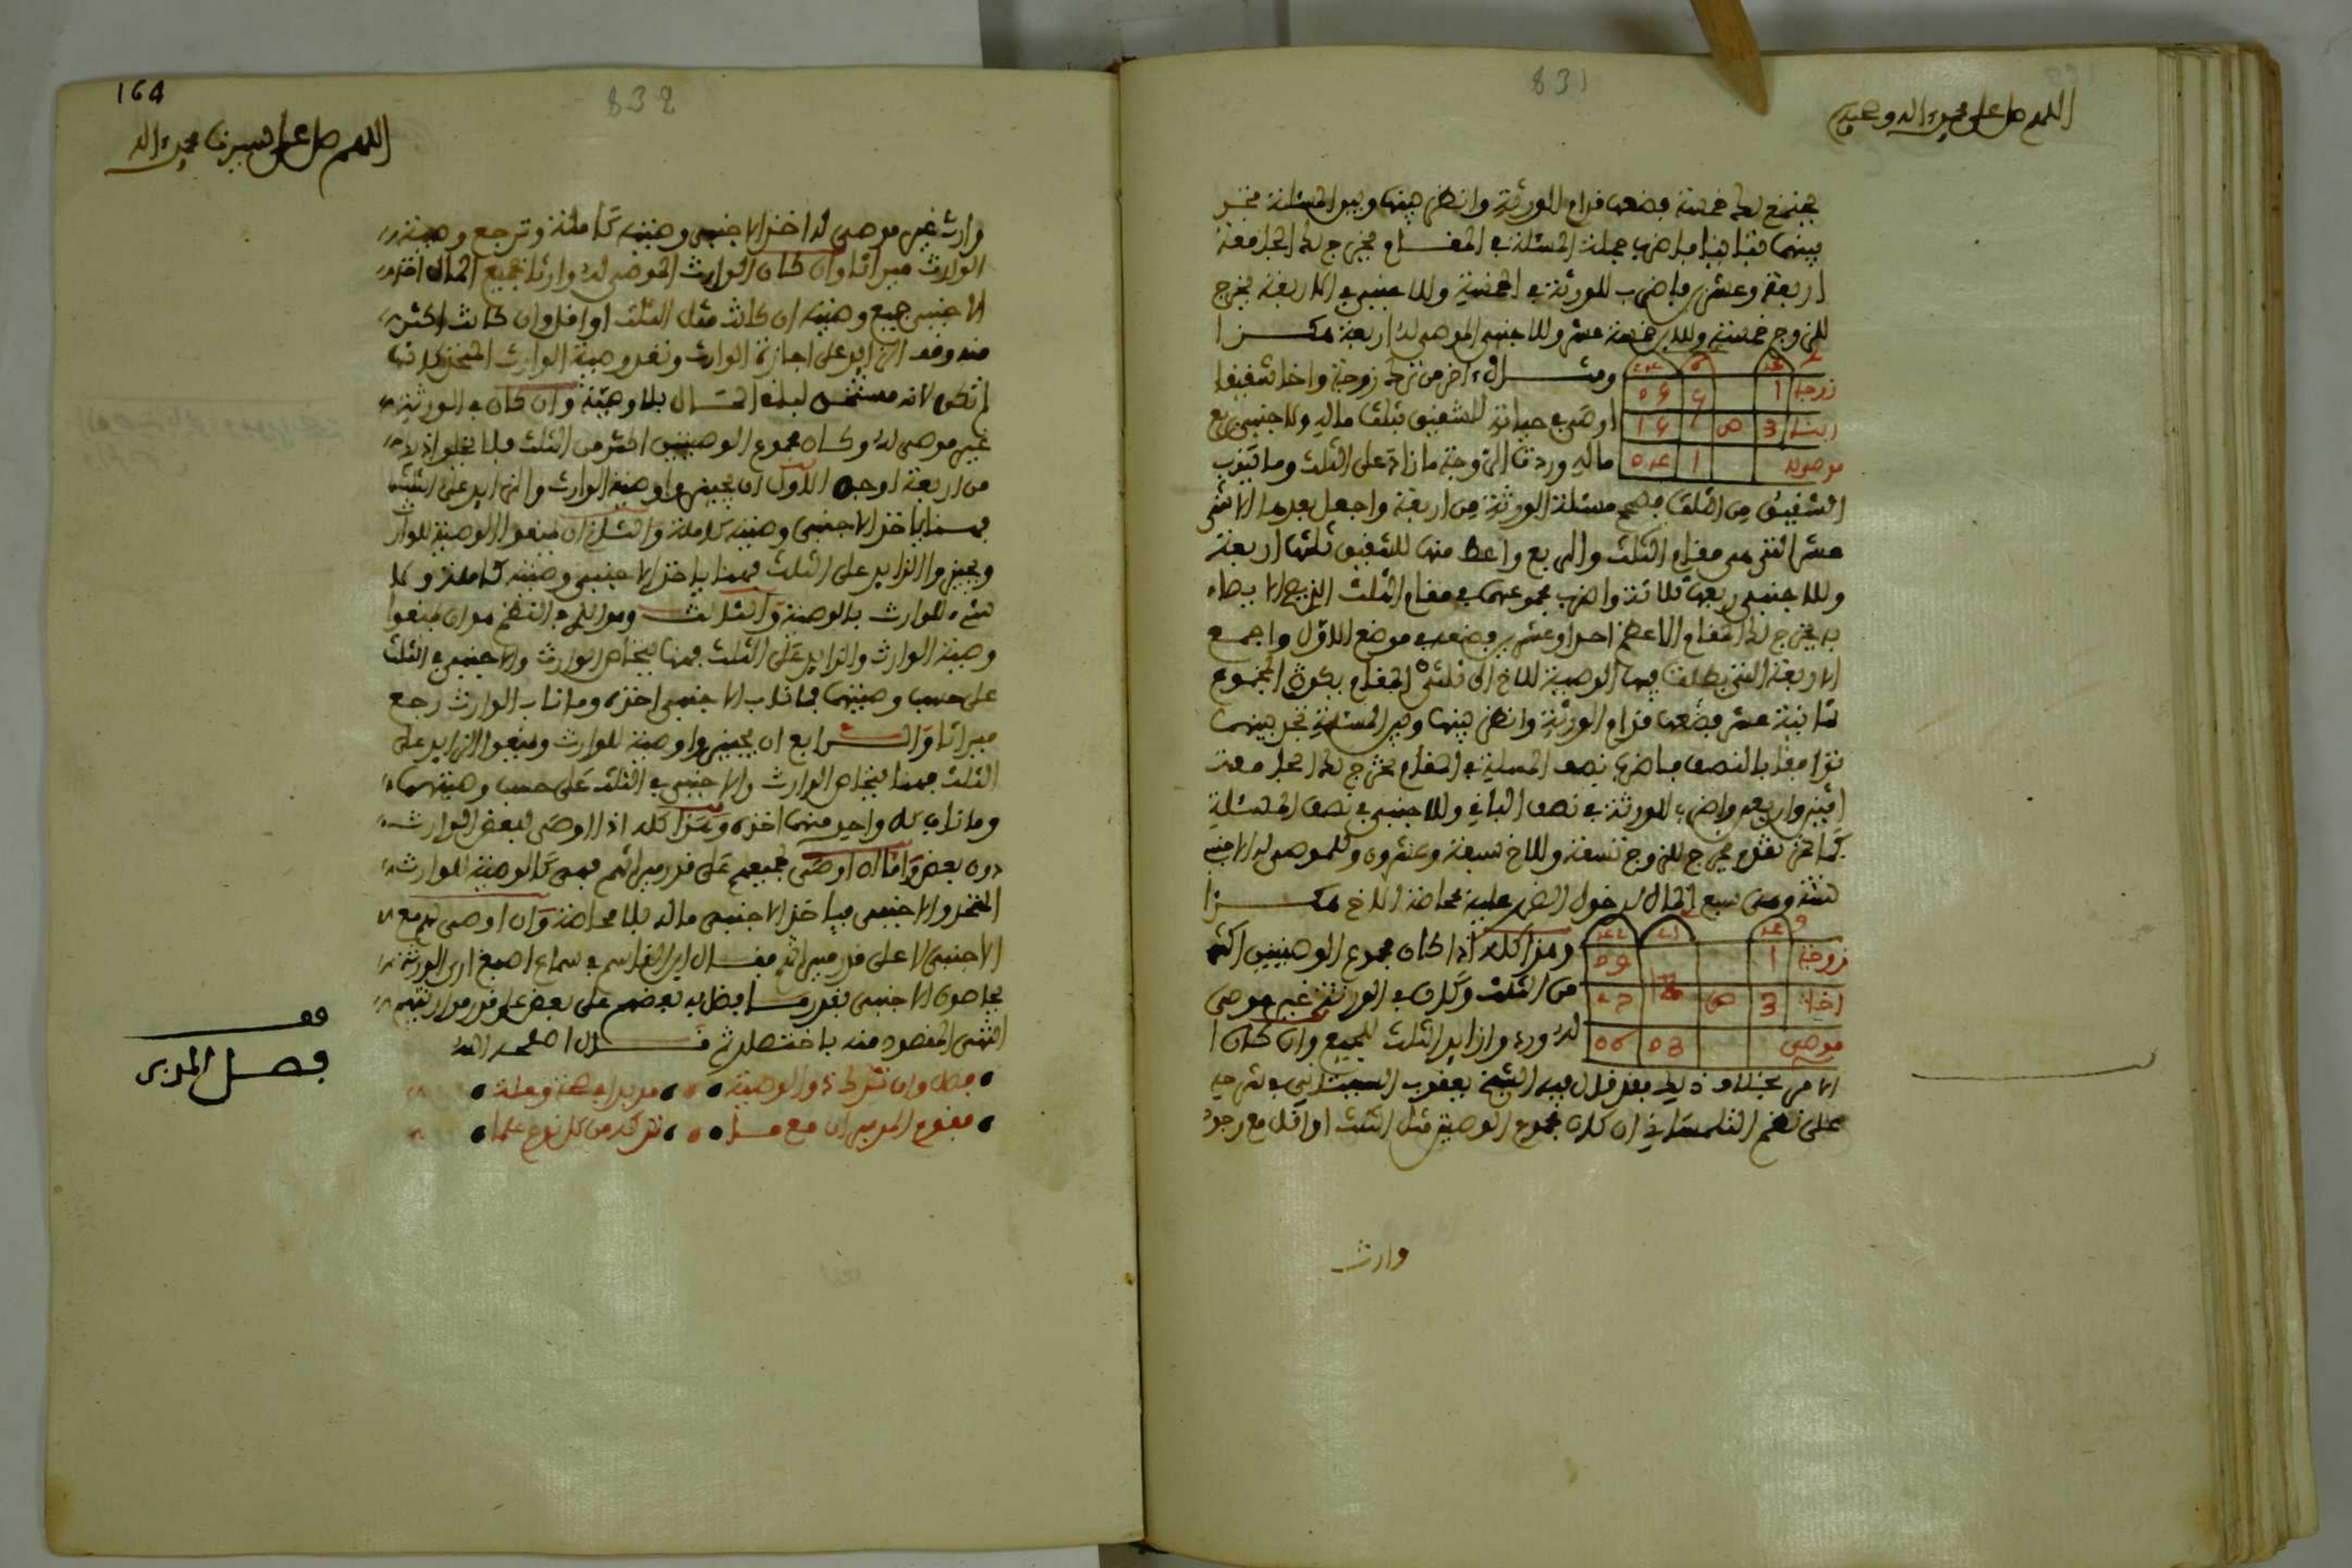 831
اللهم صل على محمد وءاله وصحبه
يجتمع لك خمسة فضعها فرام الورثة وانظر بينها وبين المسئلة تجد
بينهما تباينا فاضرب جملة المسئلة في المقام يخرج لك الجامعة
اربعة وعشرين فاضرب للورثة في الخمسة وللاجنبي في الاربعة يخرج
للزوج خمسة وللابن خمسة عشر وللاجنبي الموصى له اربعة هكذا
ومثال ءاخر من ترك زوجة واخا شقيفا
اوصى في حياته للشقيق بثلث ماله ولاجنبي بربع
ماله وردت الزوجة ما زاد على الثلث وما ينوب
زوجة 1
3 ص
موصى له 1
الشقيق من الثلث فصحح مسئلة الورثة من اربعة واجعل بعدها الاثنى
عشر التي هي مقام الثلث والربع واعط منها للشقيق ثلثها اربعة
وللاجنبي ربعها ثلاثة واضرب مجموعهما في مقام الثلث
به يخرج لك المقام الاعظم احدا وعشرين فضعه في موضع الاول واجمع
الاربعة التي بطلت فيها الوصية للاخ الى ثلثي المقام يكون المجموع
ثمانية عشر فضعها فرام الورثة وانظر بينها وبين المسئلة تجد بينهما
توافقا بالنصف فاضرب نصف المسئلة في المقام يخرج لك الجامعة
اثنين واربعين واضرب للورثة في نصف الباقي وللاجنبي في نصف المسئلة
كما تقدم يخرج للزوج تسعة وللاخ سبعة وعشرون وللموصى له الاجنبي
ستة وهي سبع المال لدخول الضرر عليه بمحاصة الاخ هكذا
وهذا كله اذا كان مجموع الوصيتين اكثر
من الثلث وكان في الورثة غير موصى
له ورد وازايد الثلث للجميع وان كان ا
زوجة 1
اخا 3 ص
موصى
الامر بخلاف ذلك فقد قال فيه الشيخ يعقوب في شرحه
على نظم التلمساني ان كان مجموع الوصية مثل الثلث او اقل مع وجود
وارث
164
832
اللهم صل على سيدنا محمد وءاله
وارث غير موصى له اخذ الاجنبي وصيته كاملة وترجع وصية
الوارث ميراثا وان كان الوارث الموصى له وارثا جميع المال اخذ
الاجنبي جميع وصيته ان كانت مثل الثلث او اقل وان كانت اكثر
منه وقف الزايد على اجازة الوارث وتعد وصية الوارث كانها
لم تكن لانه مستحق لبقية المال بلا وصية وان كان في الورثة
غير موصى له وكان مجموع الوصيتين اكثر من الثلث فلا يخلوا
من اربعة اوجه الاول ان يجيزوا وصية الوارث والزايد على الثلث
فهنا ياخذ الاجنبي وصيته كاملة والثاني ان يمنعوا الوصية للوارث
ويجيزوا الزايد على الثلث فهنا ياخذ الاجنبي وصيته كاملة ولا
شيء للوارث بالوصية والثالث وهو الذي في النظم هو ان يمنعوا
وصية الوارث والزايد على الثلث فهنا يتحاص الوارث والاجنبي في الثلث
على حسب وصيتهما فما ناب الاجنبي اخذه وما ناب الوارث رجع
ميراثا والرابع ان يجيزوا وصية للوارث ويمنعوا الزايد على
الثلث فهنا يتحاص الوارث والاجنبي في الثلث على حسب وصيتهما
وما ناب كل واحد منهما اخذه وهذا كله اذا اوصى لبعض الوارث
دون بعض واما ان اوصى لجميعهم على قدر ميراثهم فهي كالوصية للوارث
المتحد والاجنبي فياخذ الاجنبي ماله بلا محاصة وان اوصى لهم مع
الاجنبي لا على قدر ميراثهم فقال ابن القاسم في سماع اصبغ ارى الورثة
يحاصون الاجنبي بقدر ما يفضل به بعضهم على بعض على قدر مواريثهم
انتهى المقصود منه باختصار ثم قال اصلحه الله
فصل وان تترك ذو الوصية
مفوم المدبر ان مع تتركه من كل نوع علما
قف
فصل المدبر